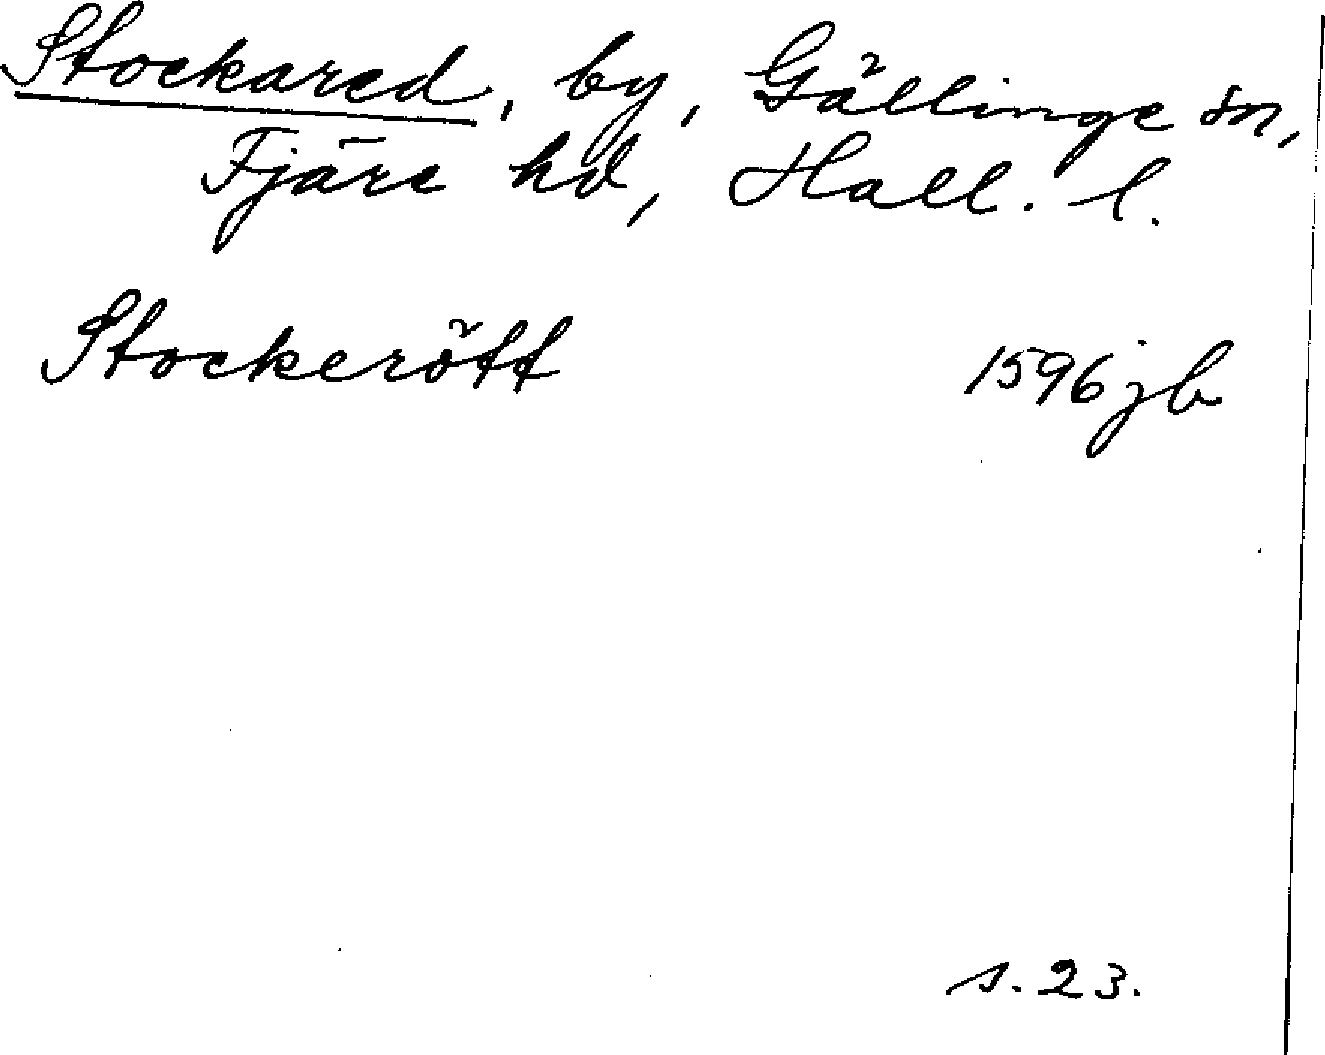 Stockared, by, Gällinge sn,
Fjäre hd, Hall. l.
Stockerött 1596 jb
s. 23.